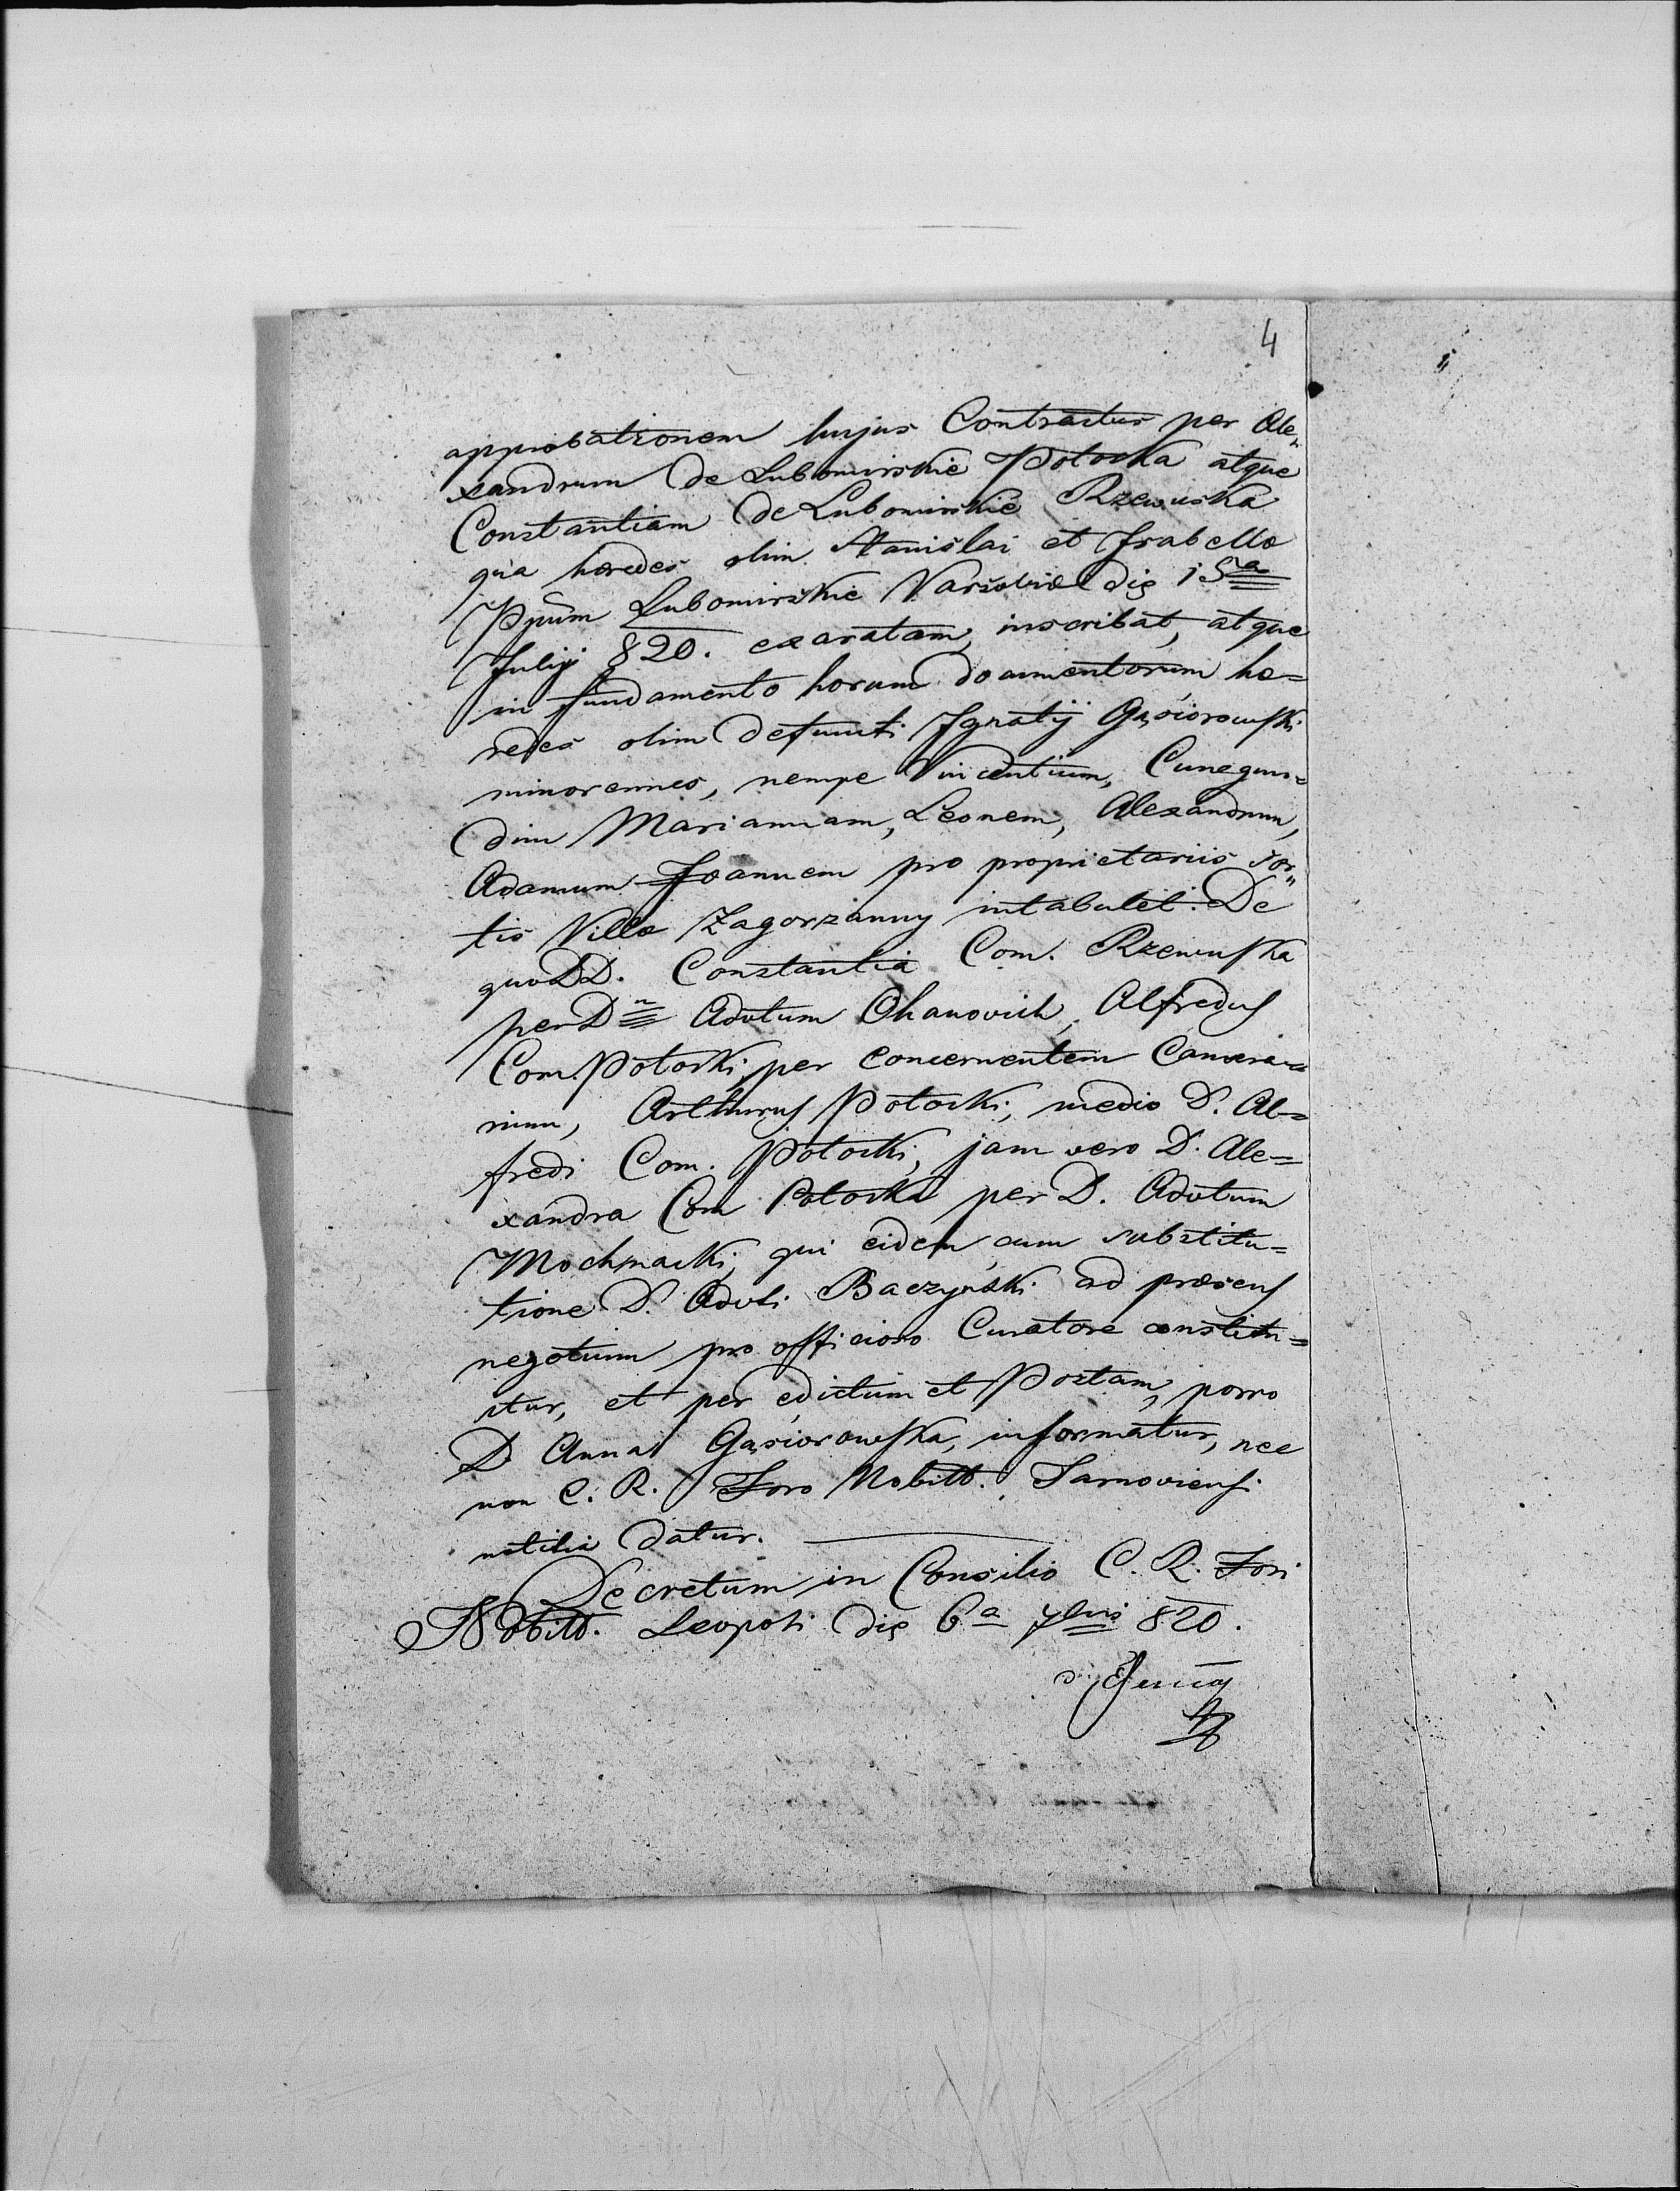 4
approbationem hujus Contractus per Ale„
xandrum de Lubomirskie Potocka atque
Constantiam de Lubomirskie Rzewuska
qua hæredes olim Stanislai et Isabellæ
Ppum Lubomirskie Varsoviæ die 15ª
Julij 820. exaratam, inscribat, atque
in fundamento horum documentorum hæ=
redes olim defuncti Ignatij Gąsiorowski
minorennes, nempe Vincentium, Cunegun=
dim Mariannam, Leonem, Alexandrum,
Adamum Joannem pro proprietariis sor„
tis Villæ Zagorzanny intabulet. De
quo DD. Constantia Com. Rzewuska
per Dn Advtum Ohanovich, Alfredus
Com. Potocki, per concernentem Camera=
rium, Arthurus Potocki, medio D. Al=
fredi Com. Potocki, jam vero D. Ale=
xandra Com Potocka per D. Advtum
Mochnacki, qui eidem cum substitu=
tione D. Advti Baczyński ad præsens
negotium pro officioso Curatore constitu=
itur, et per edictum et Postam, porro
D Anna Gąsiorowska, informatur, nec
non C. R. Foro Nobilt. Tarnoviensi
notitia datur.
Decretum in Consilio C. R. Fori
Nobilt. Leopoli die 6ª 7bris 820.